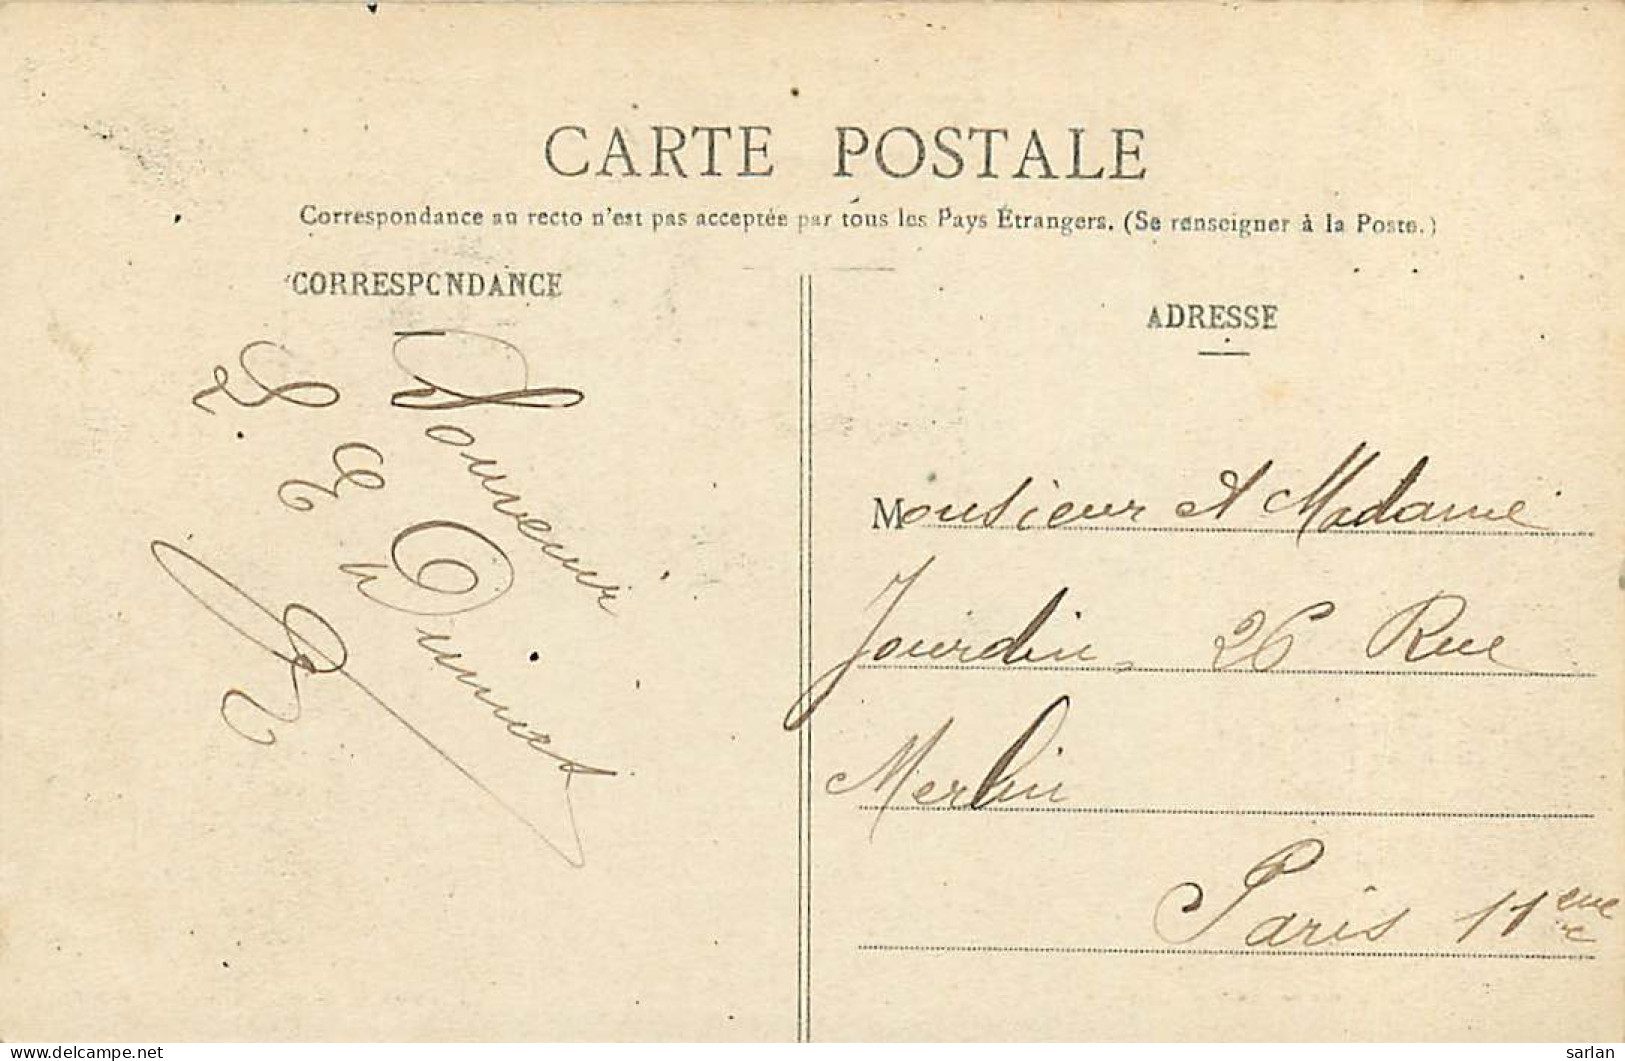 CARTE POSTALE
Correspondance au recto n'est pas acceptée par tous les Pays Étrangers. (Se renseigner à la Poste.)
CORRESPONDANCE
Souvenir
L. E. Duimet
ADRESSE
Monsieur et Madame
Jourdin, 26 Rue
Merlin
Paris 11eme
https://www.delcampe.net
sarlan